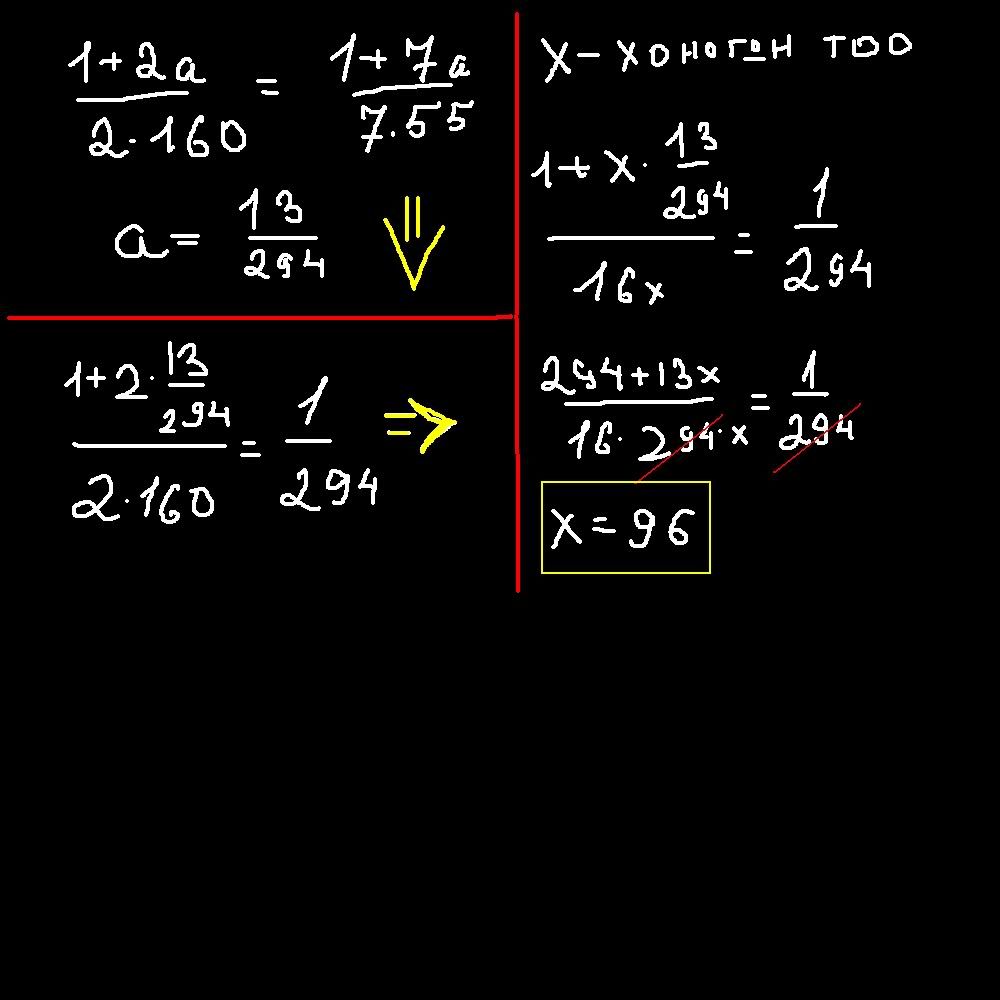 1+2a / 2·160 = 1+7a / 7.55
a = 13/294 ⇓
1+2·13/294 / 2·160 = 1/294 ⇒
X – хоногон тоо
1+x·13/294 / 16x = 1/294
294+13x / 16·294·x = 1/294
x = 96